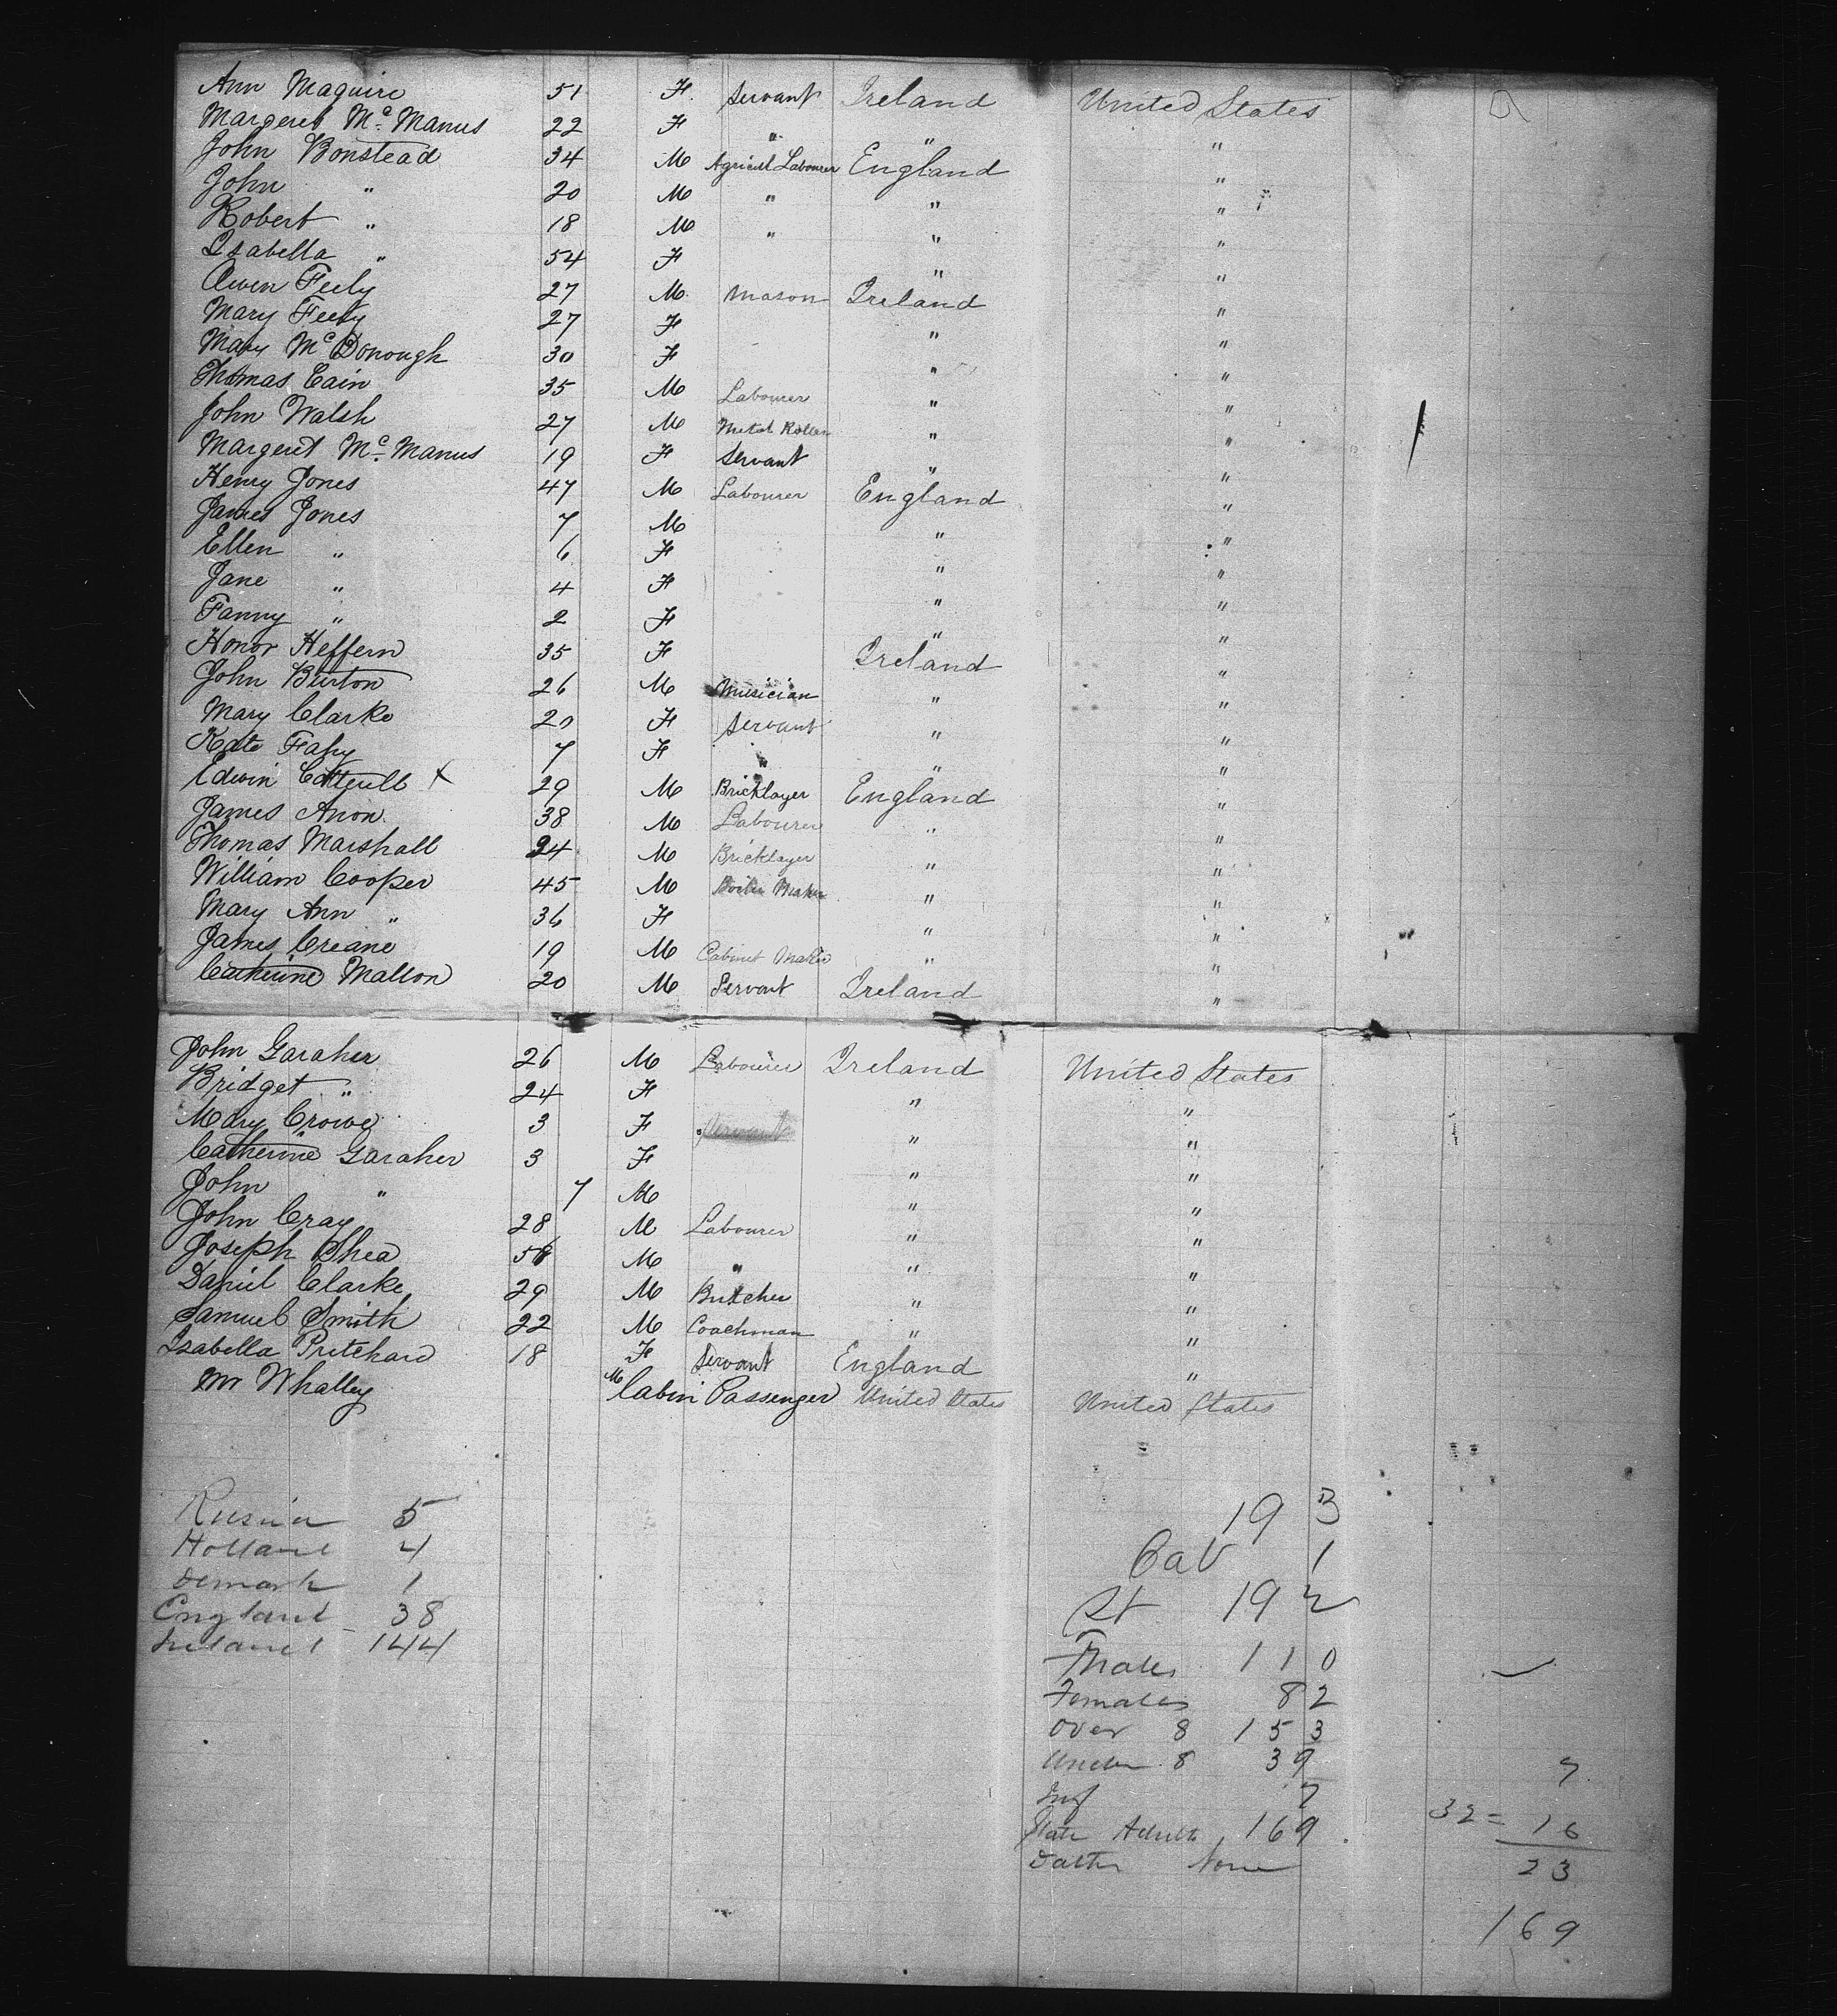 Ann Maguire 51 F. Servant Ireland United States
Margeret Mc. Manus 22 F " " "
John Bonstead 34 M Agricul Labourer England "
John " 20 M " " "
Robert " 18 M " " "
Isabella " 54 F " "
Owen Feely 27 M. Mason Ireland "
Mary Feely 27 F " "
Mary Mc Donough 30 F " "
Thomas Cain 35 M Labourer " "
John Walsh 27 M Metal Roller " "
Margeret Mc. Manus 19 F Servant " "
Henry Jones 47 M Labourer England "
James Jones 7 M " "
Ellen " 6 F " "
Jane " 4 F " "
Fanny " 2 F " "
Honor Heffern 35 F Ireland "
John Burton 26 M Musician " "
Mary Clarke 20 F Servant " "
Kate Fahy 7 F " " "
Edwin x 29 M Bricklayer England "
James Anon. 38 M Labourer " "
Thomas Marshall 24 M Bricklayer " "
William Cooper 45 M Boiler Maker " "
Mary Ann " 36 F " "
James Creane 19 M Cabinet Maker " "
Catherine Mallon 20 M Servant Ireland "
John Garaher 26 M Labourer Ireland United States
Bridget " 24 F " "
Mary Crowe 3 F Servant " "
Catherine Garaher 3 F " "
John " 7 M " "
John Cray 28 M Labourer " "
Joseph Shea M " " "
Daniel Clarke 29 M Butcher " "
Samuel Smith 22 M Coachman " "
Isabella Pritchard 18 F Servant England "
Mr Whalley M Cabin Passenger United States United States
193
Russia 5
Holland 4
Cab 1
Demark 1
St 192
England 38
Ireland 144
Males 110
Females 82
Over 8 153
Under 8 39 7
Inf 7
32 = 16
State Adults 169
23
Deaths None
169